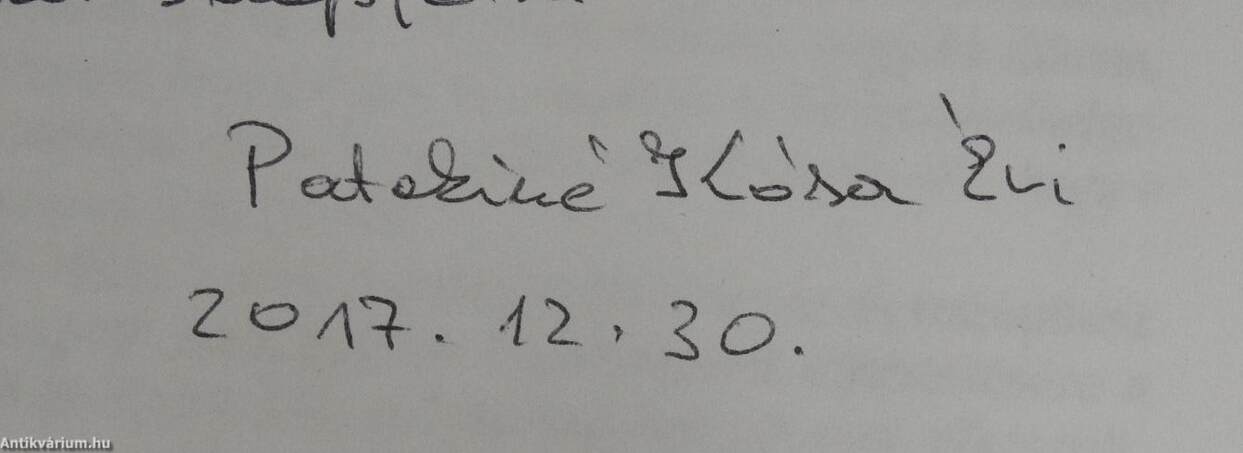 Patakiné Kósa Évi
2017. 12. 30.
Antikvárium.hu